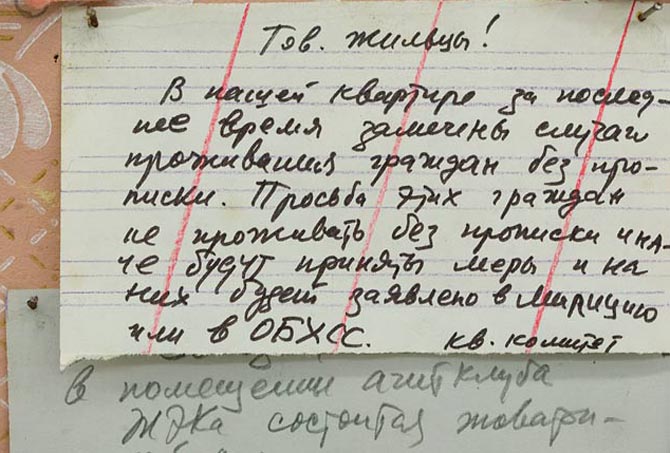 Тов. жильцы!
В нашей квартире за послед-
нее время замечены случаи
проживания граждан без про-
писки. Просьба этих граждан
не проживать без прописки ина-
че будут приняты меры и на
них будет заявлено в милицию
или в ОБХСС. кв. комитет
в помещении агитклуба
ЖЭКа состоится товари-